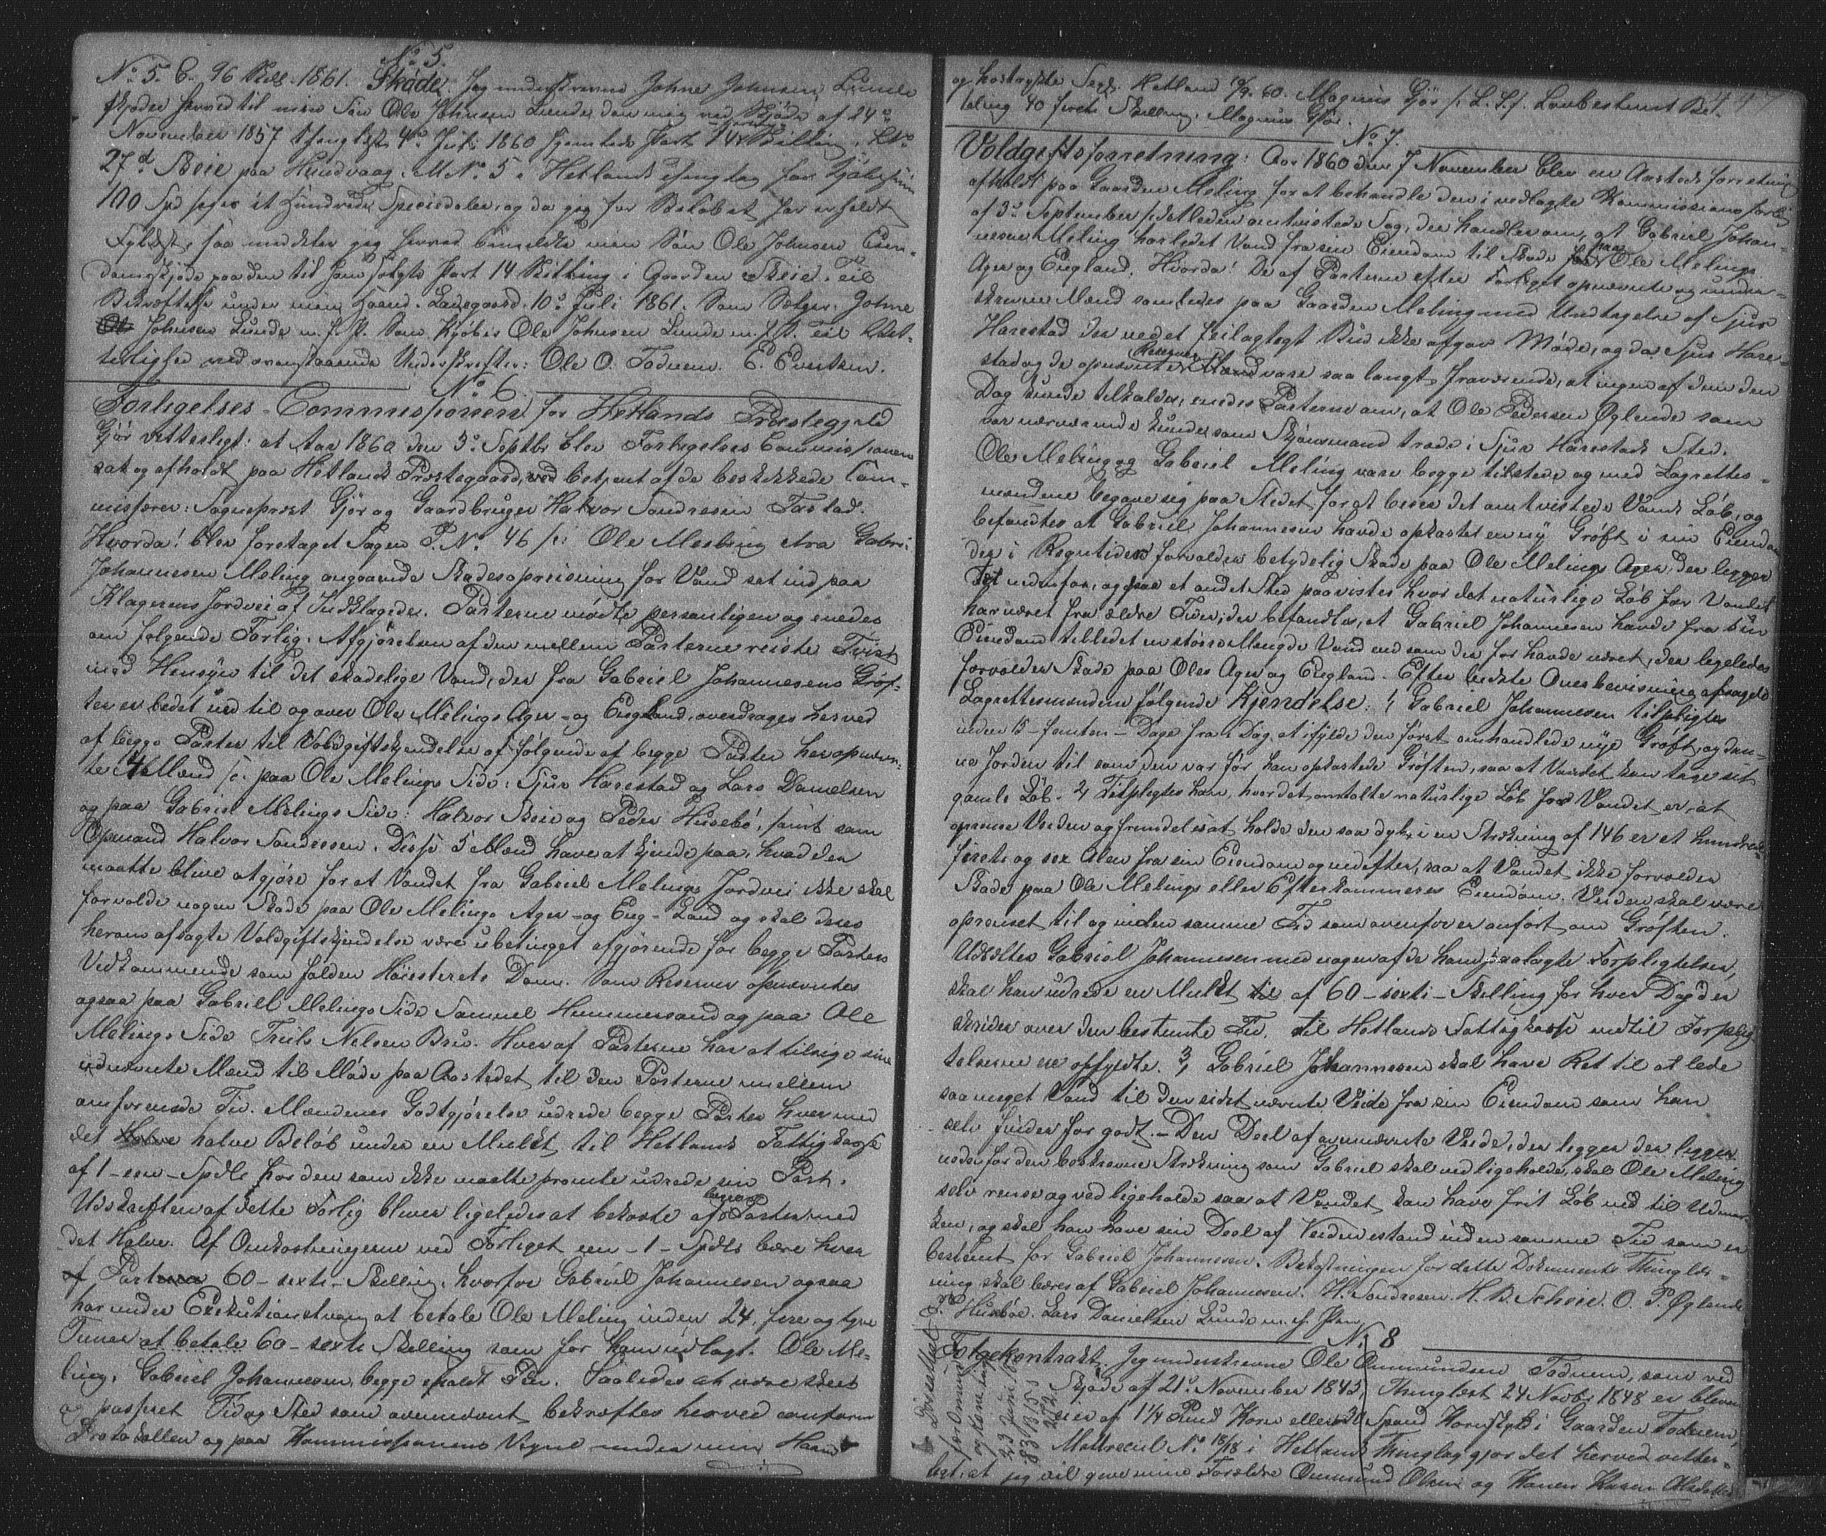 No 5.
No 5. C. 96 Skill. 1861. Skøde. Jeg underskrevne Johne Johnsen Lunde
skjøder herved til min Søn Ole Johnsen Lunde den mig ved Skjøde af 24de
November 1857 thinglyst 4de Juli 1860 hjemlede Part 14 Skilling, L No
27d Skeie paa Hundvaag. M No 5 i Hetlands Thinglag for Kjøbesum
100 Spd siger et Hundrede Speciedaler, og da jeg for Beløbet har erholdt
Fyldest, saa meddeler jeg herved bemeldte min Søn Ole Johnsen Eien-
domsskjøde paa den til ham solgte Part 14 Skilling i Gaarden Skeie. Til
Bekræftelse under min Haand. Ladegaard 10de Juli 1861. Som Sælger: Johne
Johnsen Lunde m. f. P. Som Kjøber Ole Johnsen Lunde m. f. P. Til Vit-
terlighed ved ovenstaaende Underskrifter: Ole O. Todnem. E. Evertsen.
No 6.
Forligelses-Commissionen for Hetlands Præstegjeld
Gjør vitterligt: at Aar 1860 den 3de Septbr blev Forligelses Commissionen
sat og afholdt paa Hetlands Præstegaard, ved betjent af de beskikkede Com-
missærer: Sogneprest Gjør og Gaardbruger Halvor Sondresen Tastad.
Hvorda! blev foretaget Sagen P. No 46 Ole Meling ctra Gabri-
Johannesen Meling angaaende Skadesopreisning for Vand sat ind paa
Klagerens Jordvei af Indklagede. Parterne mødte personligen og enedes
om følgende Forlig: Afgjørelsen af den mellem Parterne reiste Tvist
med Hensyn til det skadelige Vand, der fra Gabriel Johannesens Grøf-
ter er ledet ned til og over Ole Melings Ager- og England, overdrages herved
af begge Parter til Voldgiftskjendelse af følgende af begge Parter her opnævn-
te 4 Mænd paa Ole Melings Side: Sjur Harestad og Lars Danielsen
og paa Gabriel Melings Side: Halvor Skeie og Peder Husebø, samt som
Opmand Halvor Sondresen. Disse 5 Mænd have at kjende paa, hvad der
maatte blive at gjøre for at Vandet fra Gabriel Melings Jordvei ikke skal
forvolde nogen Skade paa Ole Melings Ager- og Eng-Land og skal deres
herom afsagte Voldgiftskjendelse være ubetinget afgjørende for begge Parter
Vedkommende som falden Høiesterets Dom. Som Reserver opnævntes
ogsaa paa Gabriel Melings Side Samuel Hummersand og paa Ole
Melings Side Truls Nelsen Bru. Hver af Parterne har at tilsige sine
udnævnte Mænd til Møde paa Aastedet til den Parterne mellem
omforenede Tid. Mændenes Godtgjørelse udrede begge Parter hver med
det halve Beløb under en Mulkt til Hetlands Fattigkasse
af 1-een-Spdlr for den som ikke maatte promte udrede sin Part.
Udskriften af dette Forlig bliver ligeledes at bekoste af Parterne med
det Halve. Af Omkostningerne ved Forliget een-1-Spdlr bære hver
Part 60-sexti-Skilling, hvorfor Gabriel Johannesen ogsaa
har under Exekutionstvang at betale Ole Meling inden 24, fire og tyve
Timer at betale 60-sexti Skilling som for ham udlagt. Ole Me-
ling, Gabriel Johannesen, begge m. paaholdt Pen. Saaledes at være skeet
og passeret Tid og Sted som ovennævnt bekræftes herved conform
Protokollen og paa Kommissionens Vegne under min Haand
og hostrykte Segl. Hetland 10/9 60. Magnus Gjør /L. S./ Lovbestemt Be-
taling 40 fireti Skilling. Magnus Gjør.
No 7.
Voldgiftsforretning: Aar 1860 den 7 November blev en Aastedsforretning
afholdt paa Gaarden Meling for at behandle den i vedlagte Kommissionsforlig
af 3de September sidstleden omtvistede Sag, der handler om, at Gabriel Johan-
nesen Meling har ledet Vand fra sin Eiendom til Skade paa Ole Melings
Ager og England. Hvorda! De af Parterne efter Forliget opnævnte og under-
skrevne Mænd samledes paa Gaarden Meling med Undtagelse af Sjur
Harestad der ved et feilagtigt Bud ikke afgav Møde, og da Sjur Hare-
stad og de opnævnte Reserver Mænd vare saa langt fraværende, at ingen af dem den
Dag kunde tilkaldes, enedes Parterne om, at Ole Pedersen Øglende som
var nærværende kunde som Skjønsmand træde i Sjur Harestads Sted.
Ole Meling og Gabriel Meling vare begge tilstede og med Lagrettes-
mændene begave sig paa Stedet for at bese det omtvistede Vands Løb, og
befandtes at Gabriel Johannesen havde opkastet en ny Grøft i sin Eiendom
der i Regntiden forvolder betydelig Skade paa Ole Melings Ager, der ligger
tæt nedenfor, og paa et andet Sted paavistes hvor det naturlige Løb for Vandet
har været fra ældre Tider, der befandtes, at Gabriel Johannesen havde fra sin
Eiendom tilledet en større Mængde Vand end som der før havde været, der ligeledes
forvolder Skade paa Oles Ager og England. Efter bedste Overbevisning afsagde
Lagrettesmændene følgende Kjendelse. 1, Gabriel Johannesen tilpligtes
inden 15-femten-Dage fra i Dag, at ifylde den først omhandlede nye Grøft, og dan-
ne Jorden til som den var før han opkastede Grøften, saa at Vandet kan tage sit
gamle Løb. 2, Tilpligtes han, hvor det omtalte naturlige Løb for Vandet er, at
oprense Veiden og fremdeles at holde den saa dyb i en Strækning af 146 er et hundrede
fireti og sex Alen fra sin Eiendom og nedefter, saa at Vandet ikke forvolder
Skade paa Ole Melings eller Efterkommeres Eiendom. Veiden skal være
oprenset til og inden samme Tid som ovenfor er anført om Grøften.
Udsættes Gabriel Johannesen med nogen af de ham paalagte Forpligtelser,
skal han udrede en Mulkt af 60-sexti-Skilling for hver Dag der
skrider over den bestemte Tid, til Hetlands Fattigkasse indtil Forplig-
telserne ere opfyldte. 3, Gabriel Johannesen skal have Ret til at lede
saa meget Vand til den sidst nævnte Veide fra sin Eiendom som han
selv finder for godt. - Den Deel af ovennævnte Veide, der ligger der ligger
nedenfor den beskrevne Strækning som Gabriel skal vedligeholde, skal Ole Meling
selv rense og vedligeholde saa at Vandet kan have frit Løb ned til Udmar-
ken, og skal han have sin Deel af Veiden istand inden samme Tid som er
bestemt for Gabriel Johannesen. Bekostningen for dette Dokuments Thinglæs-
ning skal bæres af Gabriel Johannesen. H. Sondresen. H. B. Scheie. O. P. Øglende
P. Husebøe. Lars Danielsen Lunde m. f. Pen
No 8
Folgekontrakt. Jeg underskrevne Ole Ommundsen Todnem, som ved
Skjøde af 21de November 1843, Thinglæst 24 Novbr 1848 er bleven
Eier af 1 1/4 Pund Korn eller Spand Kornskyld i Gaarden Todnem,
Mattrecul No 18/18 i Hetlands Thinglag gjør det herved vitter-
ligt, at jeg vil give mine Forældre Ommund Olsen og Konen Karen Olsdatter